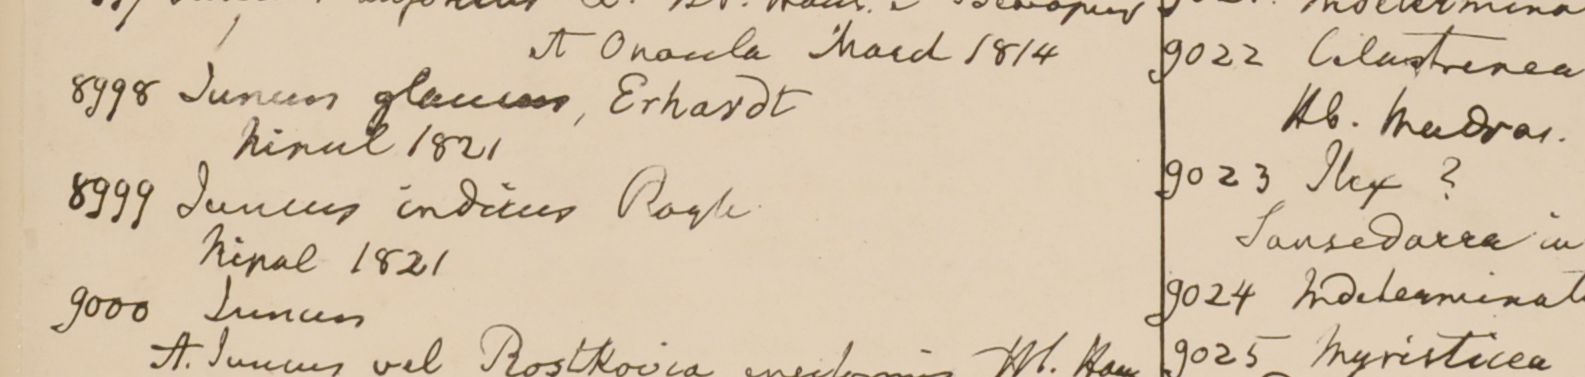 Hb. Ham. e
A Onaula March 1814
8998 Juncus glaucus, Erhardt
Nipul 1821
8999 Juncus indicus Royle
Nipal 1821
9000 Juncus
A. Juncus vel Rostkovia Hb. Ham
Indetermina
9022 Celastrinea
Hb. Madras.
9023 Ilex ?
in
9024 Indeterminat
9025 Myristicea